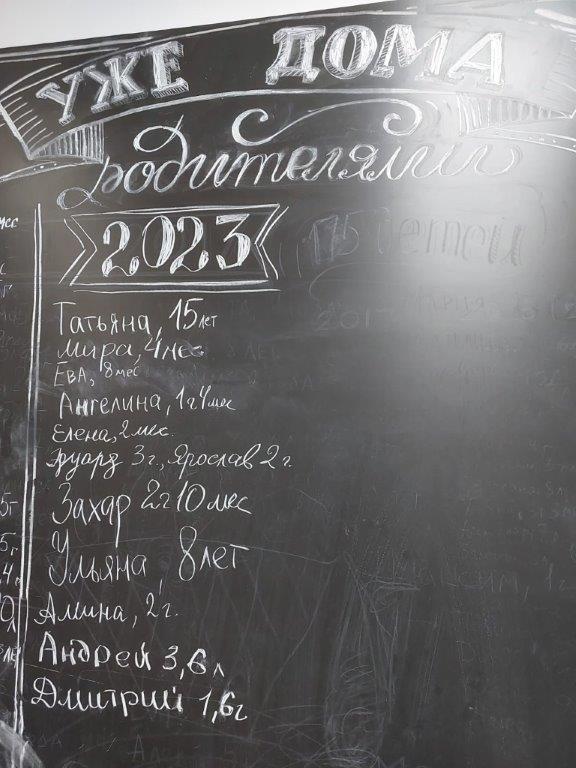 УЖЕ ДОМА
родителями
2023
Татьяна, 15 лет
Мира, 4 мес
Ева, 8 мес
Ангелина, 1 г 4 мес
Елена, 2 мес.
Эдуард 3 г., Ярослав 2 г.
Захар 2 г 10 мес
Ульяна, 8 лет
Амина, 2 г.
Андрей 3,6 л
Дмитрий 1,6 г